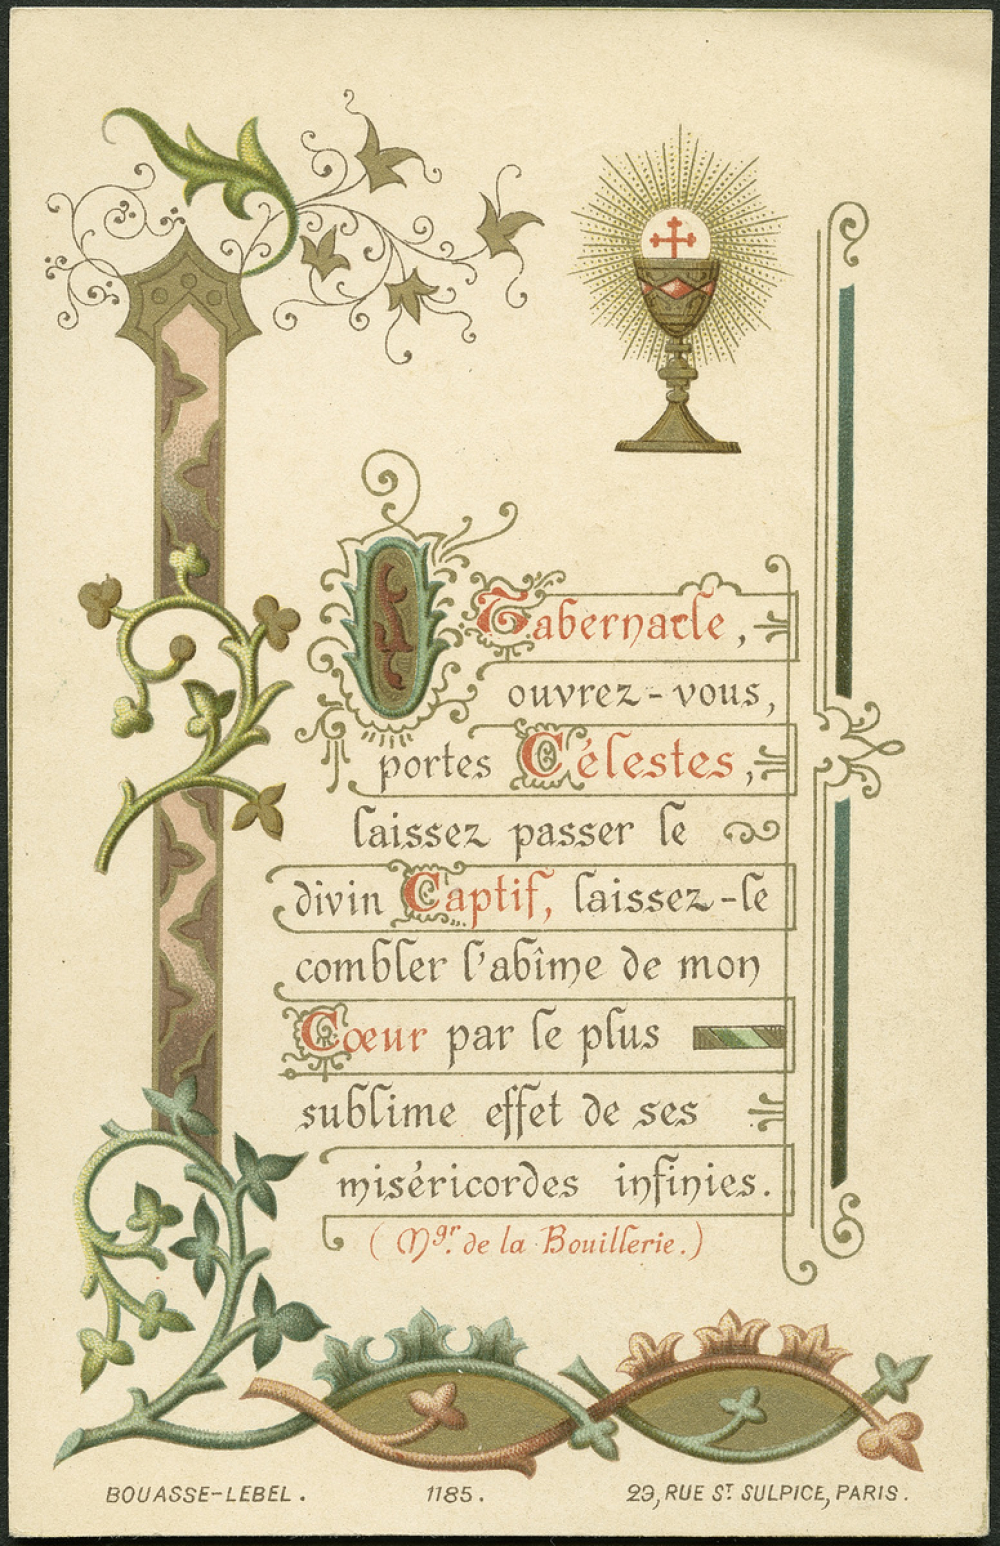 O Tabernacle,
ouvrez-vous,
portes Célestes,
laissez passer le
divin Captif, laissez-le
combler l'abîme de mon
Cœur par le plus
sublime effet de ses
miséricordes infinies.
(Mgr. de la Bouillerie.)
BOUASSE-LEBEL. 1185. 29, RUE ST. SULPICE, PARIS.